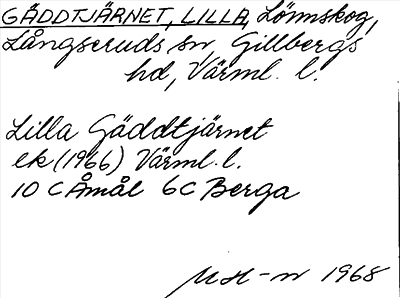 GÄDDTJÄRNET, LILLA, Lönnskog,
Långseruds sn, Gillbergs
hd, Värml. l.
Lilla Gäddtjärnet
ek (1966) Värml. l.
10 C Åmål 6C Berga
1968